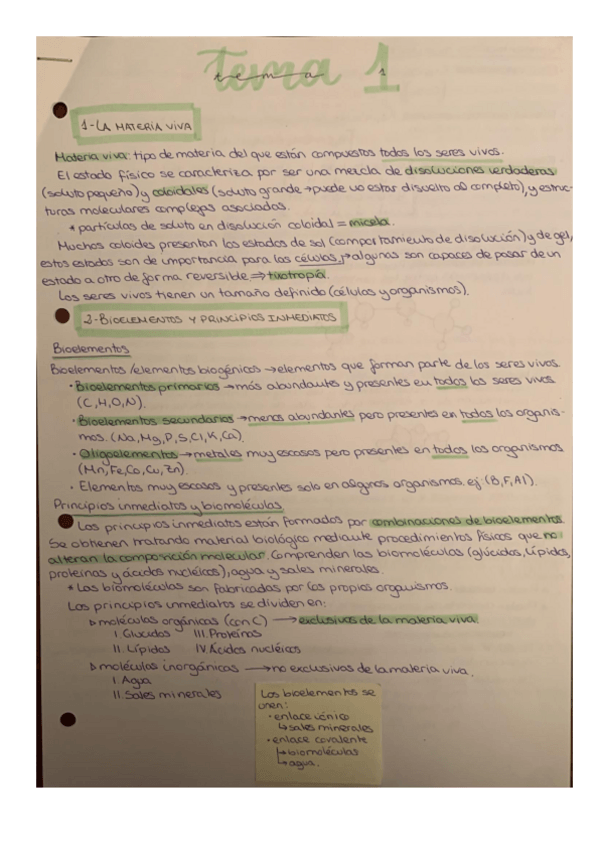 tema 1
tema 1
1-LA MATERIA VIVA
Materia viva: tipo de materia del que están compuestos todos los seres vivos.
El estado físico se caracteriza por ser una mezcla de disoluciones verdaderas
(soluto pequeño) y coloidales (soluto grande →puede no estar disuelto al completo), y estruc-
turas moleculares complejas asociadas.
* partículas de soluto en disolución coloidal = micela.
Muchos coloides presentan los estados de sol (comportamiento de disolución) y de gel,
estos estados son de importancia para las células, →algunas son capaces de pasar de un
estado a otro de forma reversible ⇒ tixotropía.
Los seres vivos tienen un tamaño definido (células y organismos).
2-BIOELEMENTOS Y PRINCIPIOS INMEDIATOS
Bioelementos
Bioelementos/elementos biogénicos →elementos que forman parte de los seres vivos.
· Bioelementos primarios →más abundantes y presentes en todos los seres vivos
(C,H,O,N).
· Bioelementos secundarios →menos abundantes pero presentes en todos los organis-
mos. (Na,Mg,P,S,Cl,K,Ca)
· Oligoelementos →metales muy escasos pero presentes en todos los organismos
(Mn,Fe,Co,Cu,Zn).
· Elementos muy escasos y presentes solo en algunos organismos. ej: (B,F,Al).
Principios inmediatos y biomoléculas
Los principios inmediatos están formados por combinaciones de bioelementos.
Se obtienen tratando material biológico mediante procedimientos físicos que no
alteran la composición molecular. Comprenden las biomoléculas (glúcidos, lípidos,
proteínas y ácidos nucleicos), agua y sales minerales.
* Las biomoléculas son fabricadas por los propios organismos.
Los principios inmediatos se dividen en:
▷ moléculas orgánicas (con C) → exclusivas de la materia viva.
I. Glucidos III. Proteínas
II. Lípidos IV. Ácidos nucléicos
▷ moléculas inorgánicas → no exclusivas de la materia viva.
I. Agua
II. Sales minerales
Los bioelementos se
unen:
· enlace iónico
↳ sales minerales
· enlace covalente
↳ biomoléculas
↳ agua.